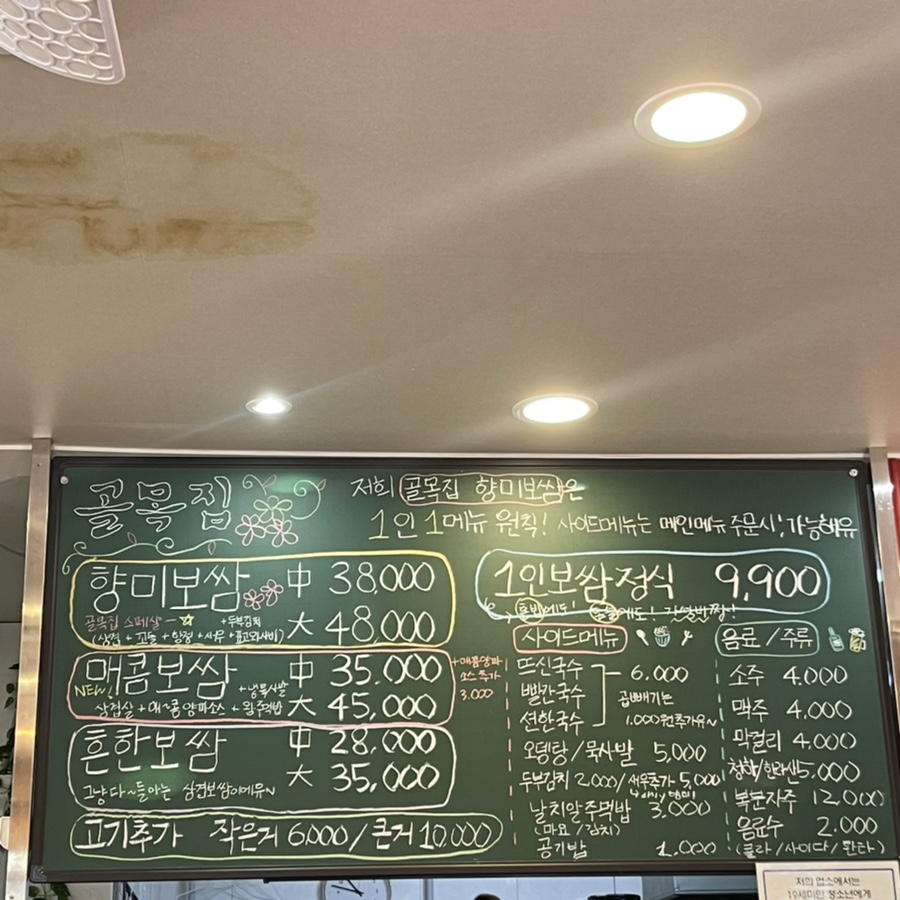 골목집
저희 골목집 향미보쌈은
1인 1메뉴 원칙! 사이드메뉴는 메인메뉴 주문시 가능해유
향미보쌈 中 38,000
골목집 스페샬 +두부김치 大 48,000
매콤보쌈 中 35,000
NEW! +냉묵사발
삼겹살 + 매~콤 양파소스 + 왕주먹밥 大 45,000
+매콤양파
소스 추가
3,000
흔한보쌈 中 28,000
大 35,000
그냥 다~들아는 삼겹보쌈이에유~
고기추가 작은거 6,000 / 큰거 10,000
1인보쌈정식 9,900
사이드메뉴
뜨신국수
빨간국수 6,000
션한국수
곱빼기는
1,000원추가유~
오뎅탕 / 묵사발 5,000
두부김치 2,000 / 새우추가 5,000
날치알주먹밥 3,000
(마요 / 김치)
공기밥 1,000
음료 / 주류
소주 4,000
맥주 4,000
막걸리 4,000
청하/한라산 5,000
복분자주 12,000
음료수 2,000
(콜라 / 사이다 / 환타)
저희 업소에서는
19세미만 청소년에게